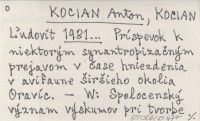 KOCIAN Anton, KOCIAN
Ľudovít 1981... Príspevok k
niektorým synantropizačným
prejavom v čase hniezdenia
v avifaune širšieho okolia
Oravíc. — Wi Spoločenský
význam výskumov pri tvorbe